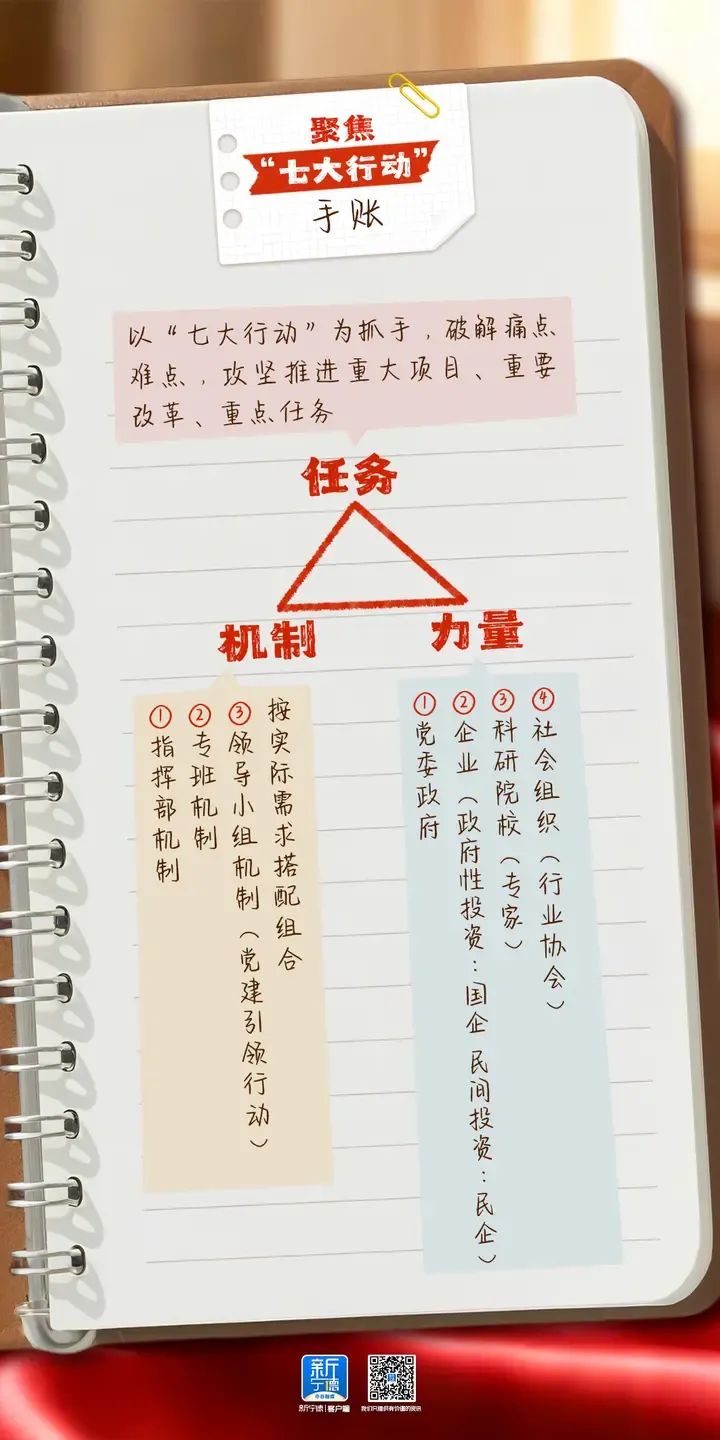 聚焦
“七大行动”
手账
以“七大行动”为抓手，破解痛点
难点，攻坚推进重大项目、重要
改革、重点任务
任务
机制
力量
①指挥部机制
②专班机制
③领导小组机制（党建引领行动）
按实际需求搭配组合
①党委政府
②企业（政府性投资：国企 民间投资：民企）
③科研院校（专家）
④社会组织（行业协会）
新宁德
新宁德|客户端
我们只提供有价值的资讯